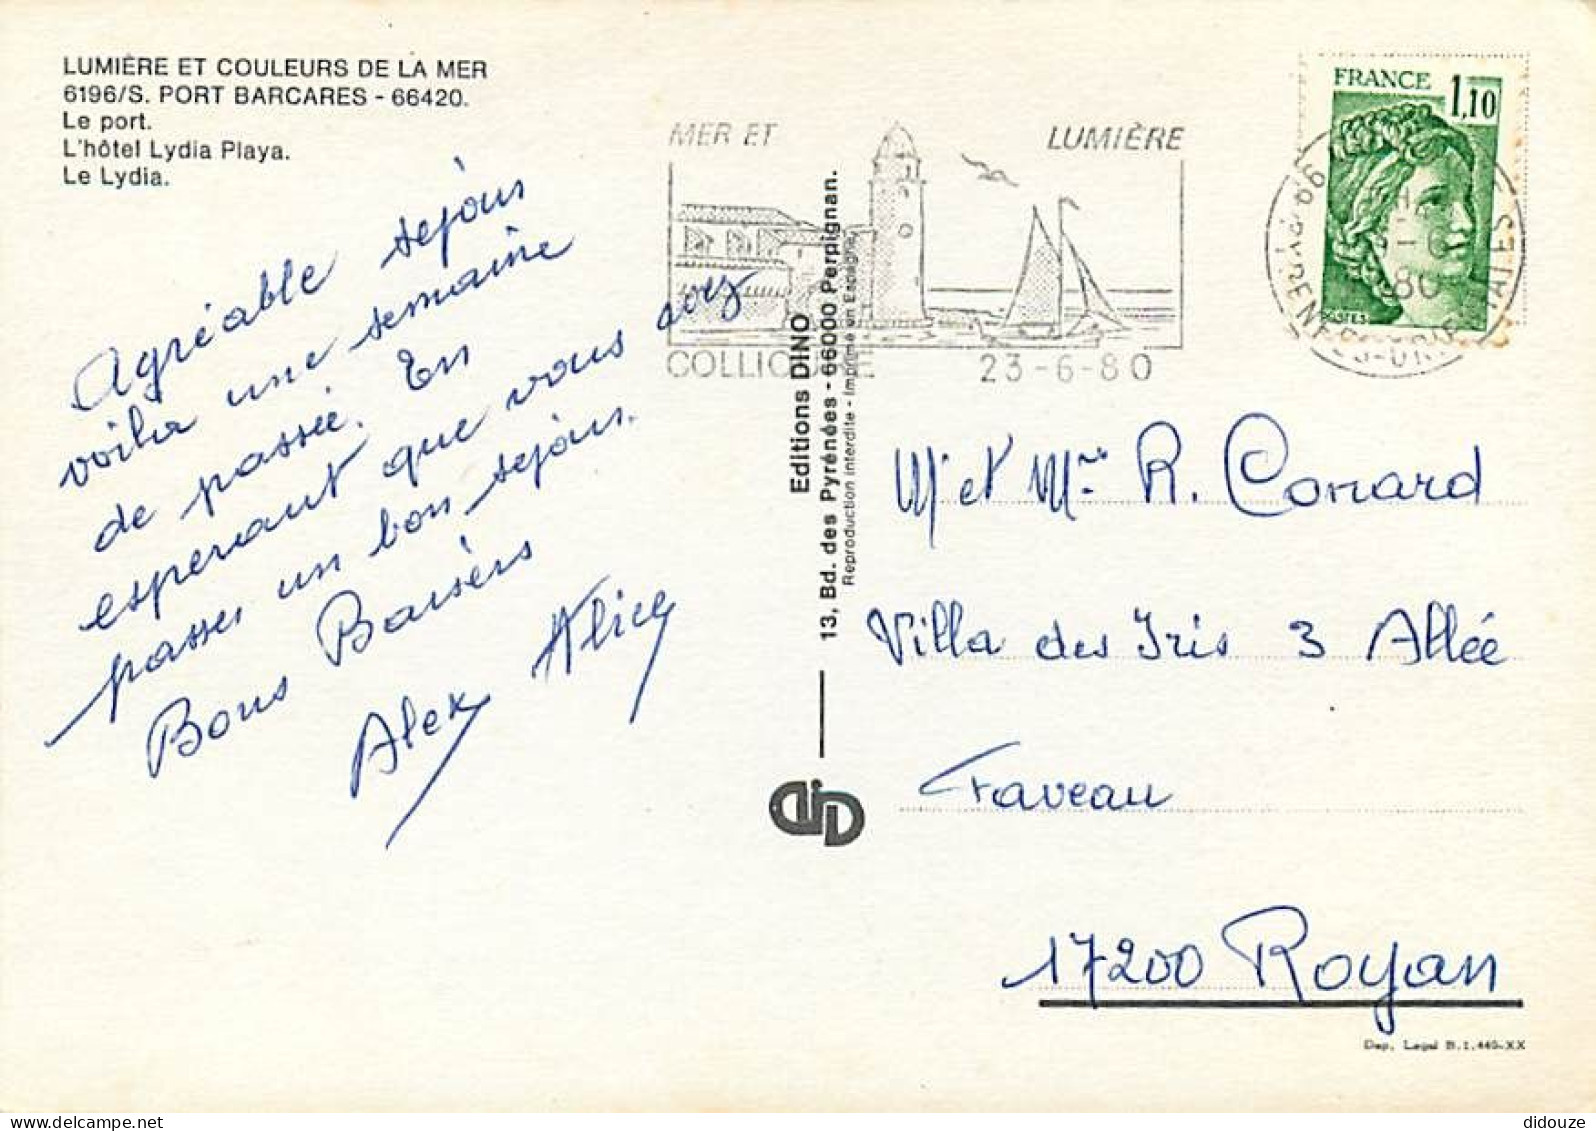 LUMIÈRE ET COULEURS DE LA MER
6196/S. PORT BARCARES - 66420.
Le port.
L'hôtel Lydia Playa.
Le Lydia.
Agréable sejour
voila une semaine
de passée. En
esperant que vous avez
passer un bon sejour.
Bons Baisers
Alex Alice
MER ET LUMIÈRE
COLLIOURE 23-6-80
Editions DINO
13, Bd. des Pyrénées - 66000 Perpignan.
Reproduction interdite - Imprimé en Espagne
FRANCE 1,10
66 PYRENEES-ORIENTALES
80
M et Mme R. Conard
Villa des Iris 3 Allée
Fraveau
17200 Royan
Dep. Legal B.I.440-XX
didouze